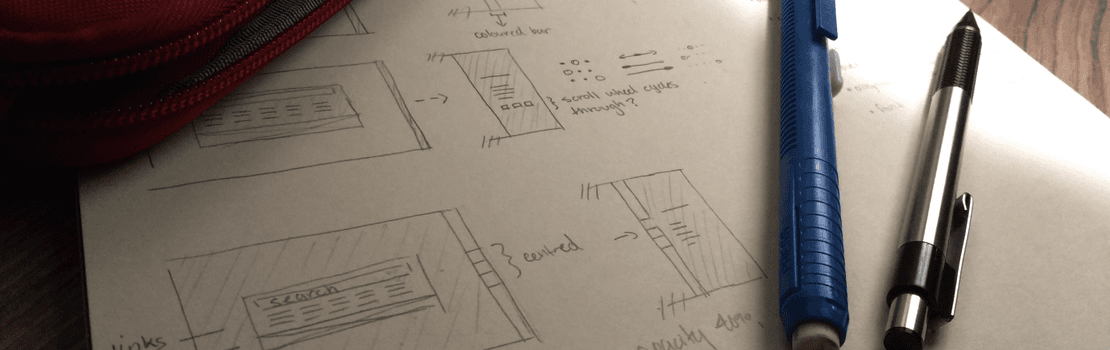 coloured bar
scroll wheel cycles
through?
centred
search
links
opacity 40%.